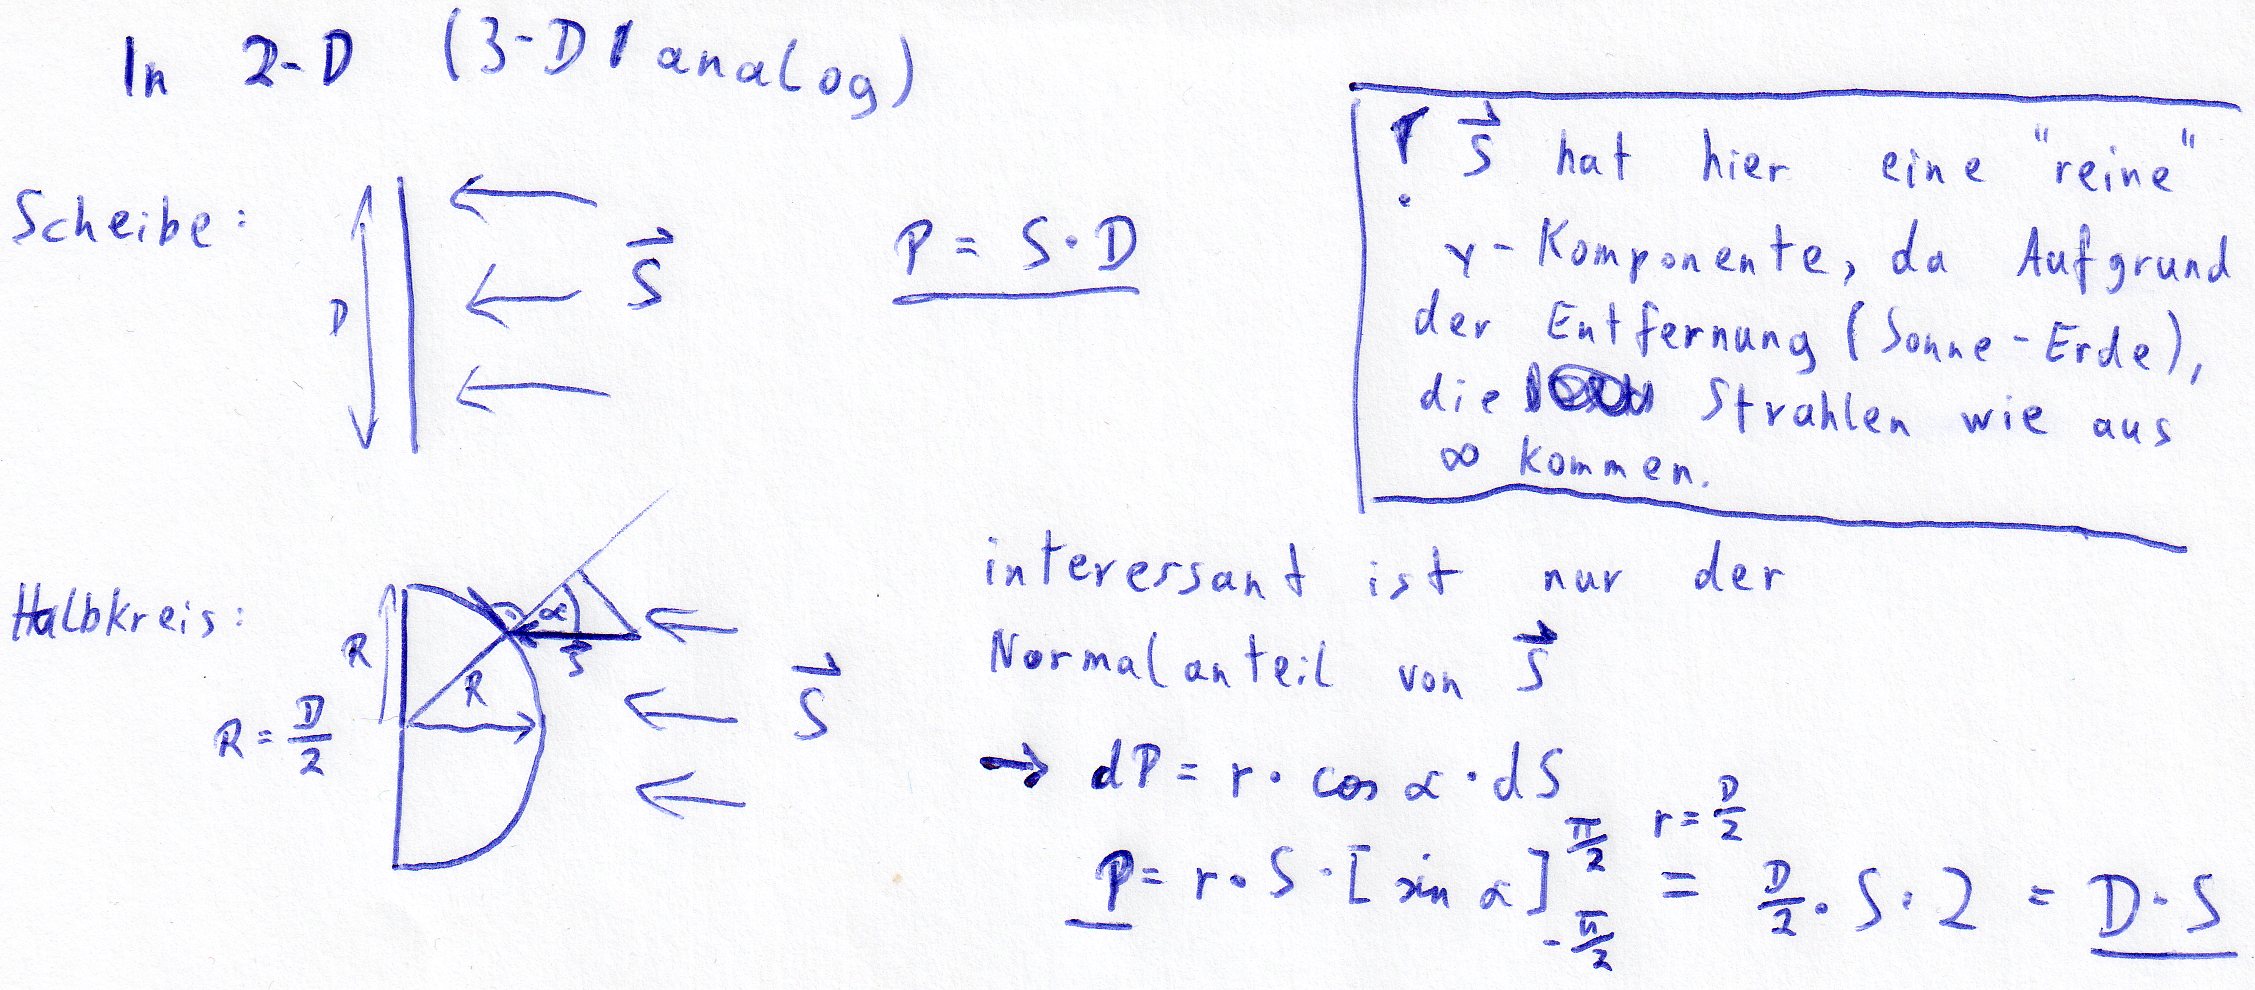 In 2-D (3-D analog)
! S⃗ hat hier eine "reine"
y-Komponente, da Aufgrund
der Entfernung (Sonne-Erde),
die Strahlen wie aus
∞ kommen.
Scheibe:
D
S⃗
P = S·D
Halbkreis:
R
R = D/2
R
α
S⃗
S⃗
interessant ist nur der
Normalanteil von S⃗
→ dP = r · cos α · dS
P = r · S · [sin α]_{-π/2}^{π/2} =^{r = D/2} D/2 · S · 2 = D · S